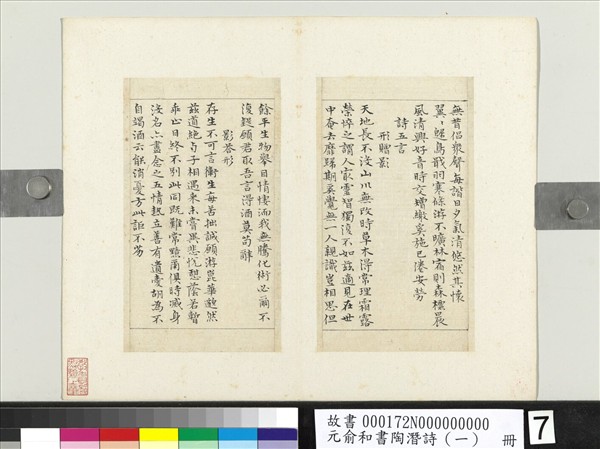 無昔侶衆聲每諧日夕氣清悠然其懷
翼翼歸鳥戢羽寒條游不曠林宿則森標晨
風清興好音時交矰繳奚施已倦安勞
詩五言
形贈影
天地長不沒山川無改時草木得常理霜露
榮悴之謂人最靈智獨復不如茲適見在世
中奄去靡歸期奚覺無一人親識豈相思但
餘平生物舉目情悽洏我無騰化術必爾不
復疑願君取吾言得酒莫苟辭
影荅形
存生不可言衛生每苦拙誠願游崑華邈然
茲道絶與子相遇來未嘗異悲悅憩蔭若暫
乖止日終不别此同既難常黯爾俱時滅身
沒名亦盡念之五情熱立善有遺愛胡為不
自竭酒云能消憂方此詎不劣
故書 000172N000000000
元俞和書陶潛詩(一) 冊
7